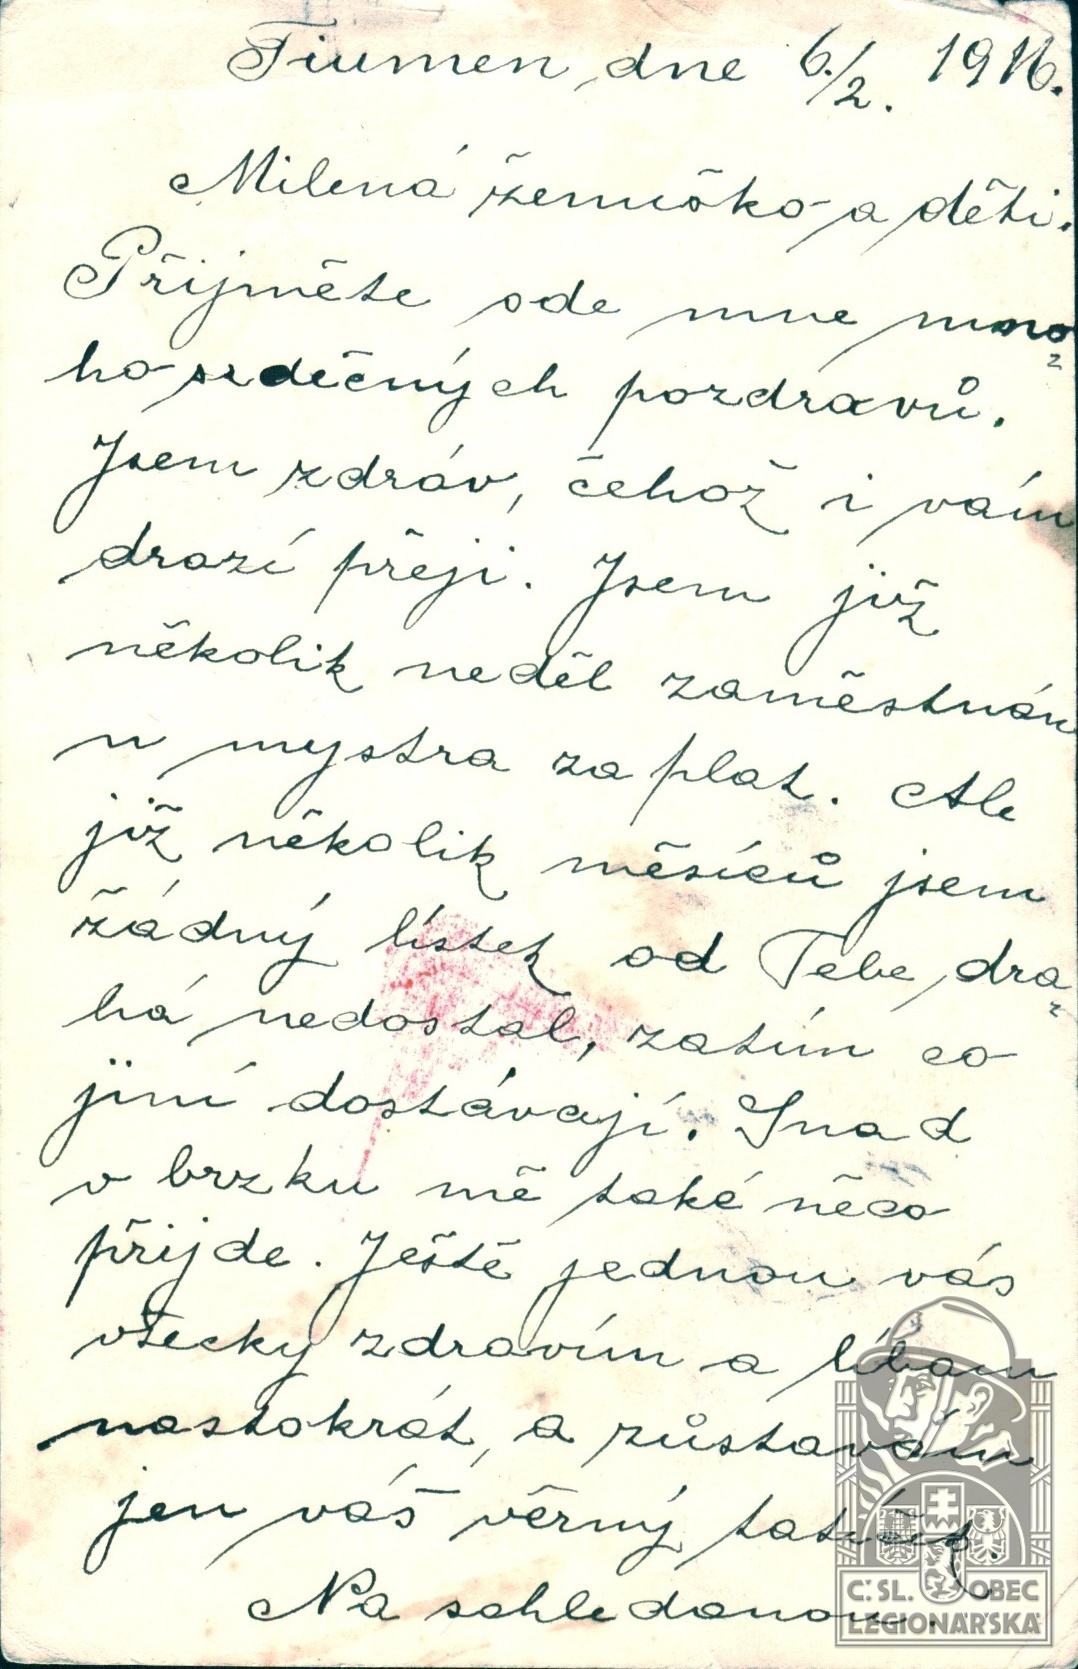 Tiumen dne 6./2. 1916.
Milená ženuško a děti.
Přijměte ode mne mno-
ho srdečných pozdravů.
Jsem zdráv, čehož i vám
drazí přeji. Jsem již
několik neděl zaměstnán
u mystra za plat. Ale
již několik měsíců jsem
žádný lístek od Tebe dra-
há nedostal, zatím co
jiní dostávají. Snad
v brzku mě také něco
přijde. Ještě jednou vás
všecky zdravím a líbam
nastokrát, a zůstavám
jen váš věrný tatíček.
Na schledanou.
Č.SL. OBEC
LEGIONÁŘSKÁ